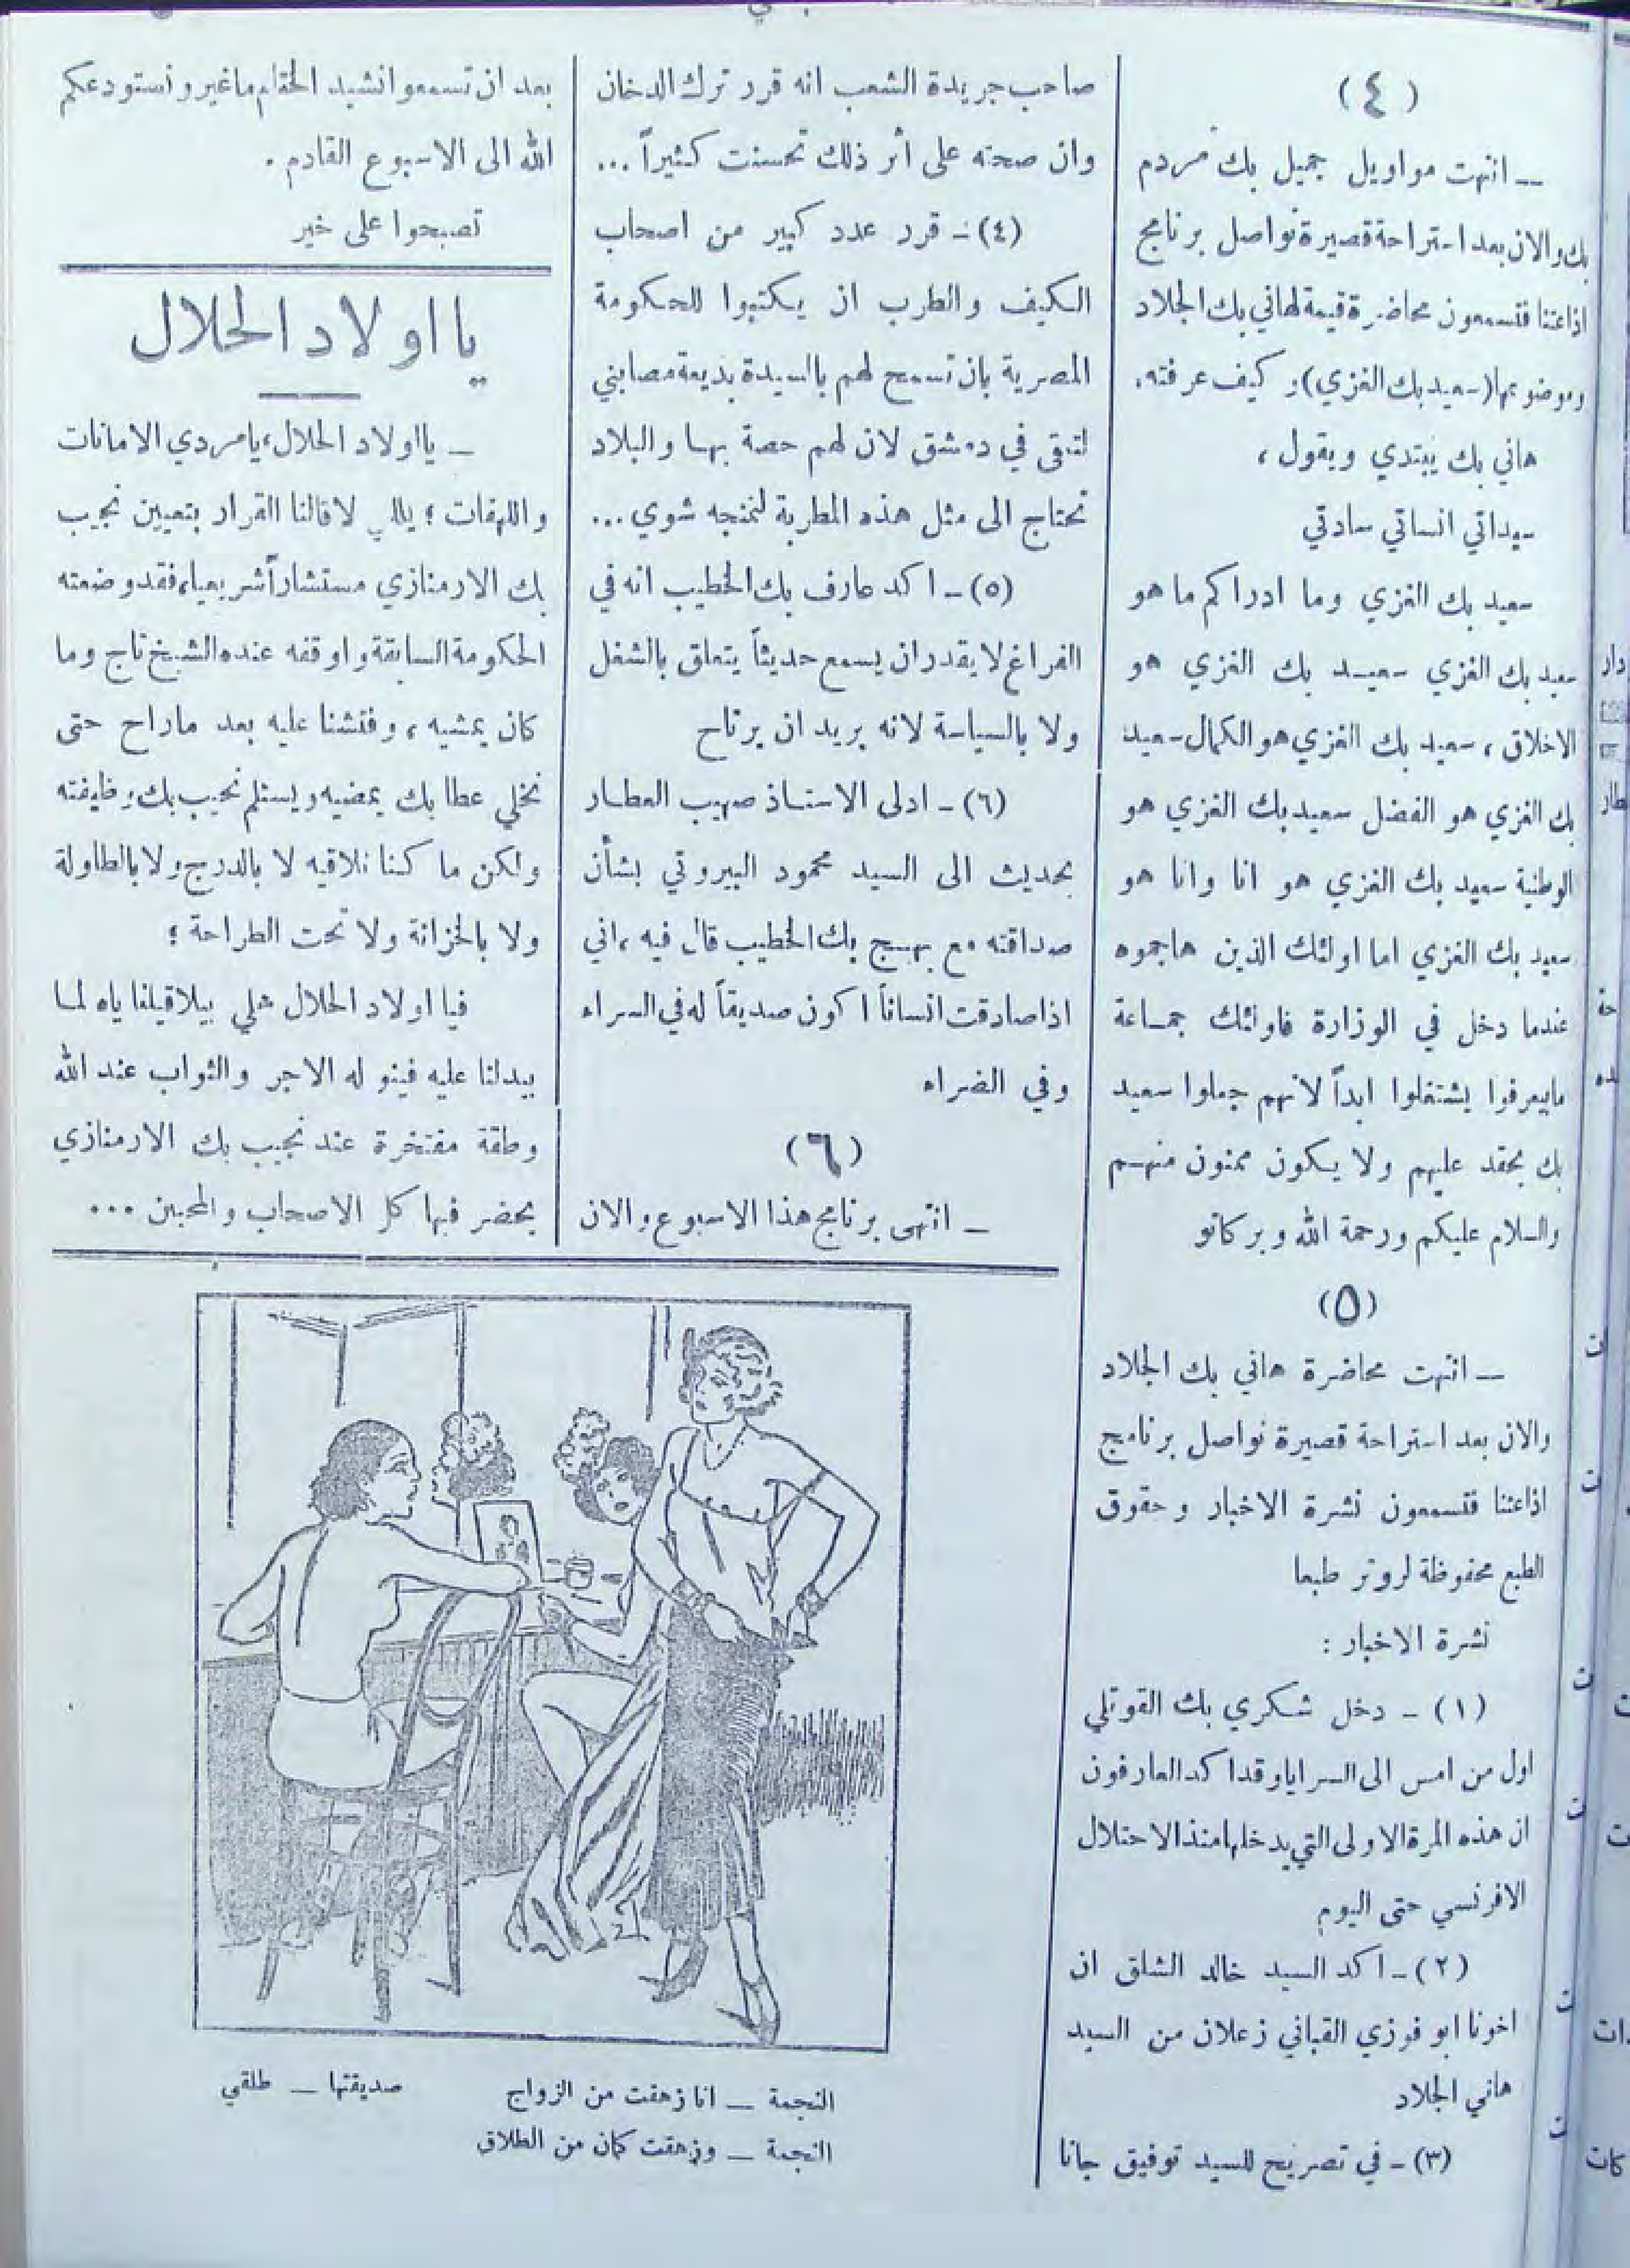 (٤)
— انتهت مواويل جميل بك مردم
بك والان بعد استراحة قصيرة نواصل برنامج
اذاعتنا فتسمعون محاضرة قيمة لهاني بك الجلاد
وموضوعها (سعيد بك الغزي) وكيف عرفته،
هاني بك يبتدي ويقول ،
سيداتي انساتي سادتي
سعيد بك الغزي وما ادراكم ما هو
سعيد بك الغزي سعيد بك الغزي هو
الاخلاق ، سعيد بك الغزي هو الكمال سعيد
بك الغزي هو الفضل سعيد بك الغزي هو
الوطنية سعيد بك الغزي هو انا وانا هو
سعيد بك الغزي اما اولئك الذين هاجموه
عندما دخل في الوزارة فاولئك جماعة
مابيعرفوا يشتغلوا ابداً لانهم جعلوا سعيد
بك يحقد عليهم ولا يكون ممنون منهم
والسلام عليكم ورحمة الله وبركاتو
(٥)
— انتهت محاضرة هاني بك الجلاد
والان بعد استراحة قصيرة نواصل برنامج
اذاعتنا فتسمعون نشرة الاخبار وحقوق
الطبع محفوظة لروتر طبعا
نشرة الاخبار :
(١) - دخل شكري بك القوتلي
اول من امس الى السرايا وقد اكد العارفون
ان هذه المرة الاولى التي يدخلها منذ الاحتلال
الافرنسي حتى اليوم
(٢) - اكد السيد خالد الشلق ان
اخونا ابو فوزي القباني زعلان من السيد
هاني الجلاد
(٣) - في تصريح للسيد توفيق جانا
صاحب جريدة الشعب انه قرر ترك الدخان
وان صحته على أثر ذلك تحسنت كثيراً ...
(٤) - قرر عدد كبير من اصحاب
الكيف والطرب ان يكتبوا للحكومة
المصرية بان تسمح لهم بالسيدة بديعة مصابني
لتبقى في دمشق لان لهم حصة بها والبلاد
تحتاج الى مثل هذه المطربة لنمنجه شوي ...
(٥) - اكد عارف بك الخطيب انه في
الفراغ لا يقدر ان يسمع حديثاً يتعلق بالشغل
ولا بالسياسة لانه يريد ان يرتاح
(٦) - ادلى الاستاذ صهيب العطار
بحديث الى السيد محمود البيروتي بشأن
صداقته مع بهيج بك الخطيب قال فيه ، اني
اذا صادقت انساناً اكون صديقاً له في السراء
وفي الضراء
(٦)
— انتهى برنامج هذا الاسبوع والان
بعد ان تسمعوا نشيد الختام ماغير ونستودعكم
الله الى الاسبوع القادم .
تصبحوا على خير
يا اولاد الحلال
— يا اولاد الحلال ، يامردي الامانات
واللهفات ؛ يللي لاقالنا القرار بتعيين نجيب
بك الارمنازي مستشاراً شرعيا، فقد وضعته
الحكومة السابقة واوقفه عنده الشيخ تاج وما
كان يمشيه ، وفتشنا عليه بعد ماراح حتى
نخلي عطا بك يمضيه ويستلم نجيب بك وظيفته
ولكن ما كنا نلاقيه لا بالدرج ولا بالطاولة
ولا بالخزانة ولا تحت الطراحة ؛
فيا اولاد الحلال شلي بيلاقيلنا ياه لما
بيدلنا عليه فينو له الاجر والثواب عند الله
وطقة مفتخرة عند نجيب بك الارمنازي
يحضر فيها كل الاصحاب والمحبين ...
النجمة — انا زهقت من الزواج
صديقتها — طلقي
النجمة — وزهقت كمان من الطلاق